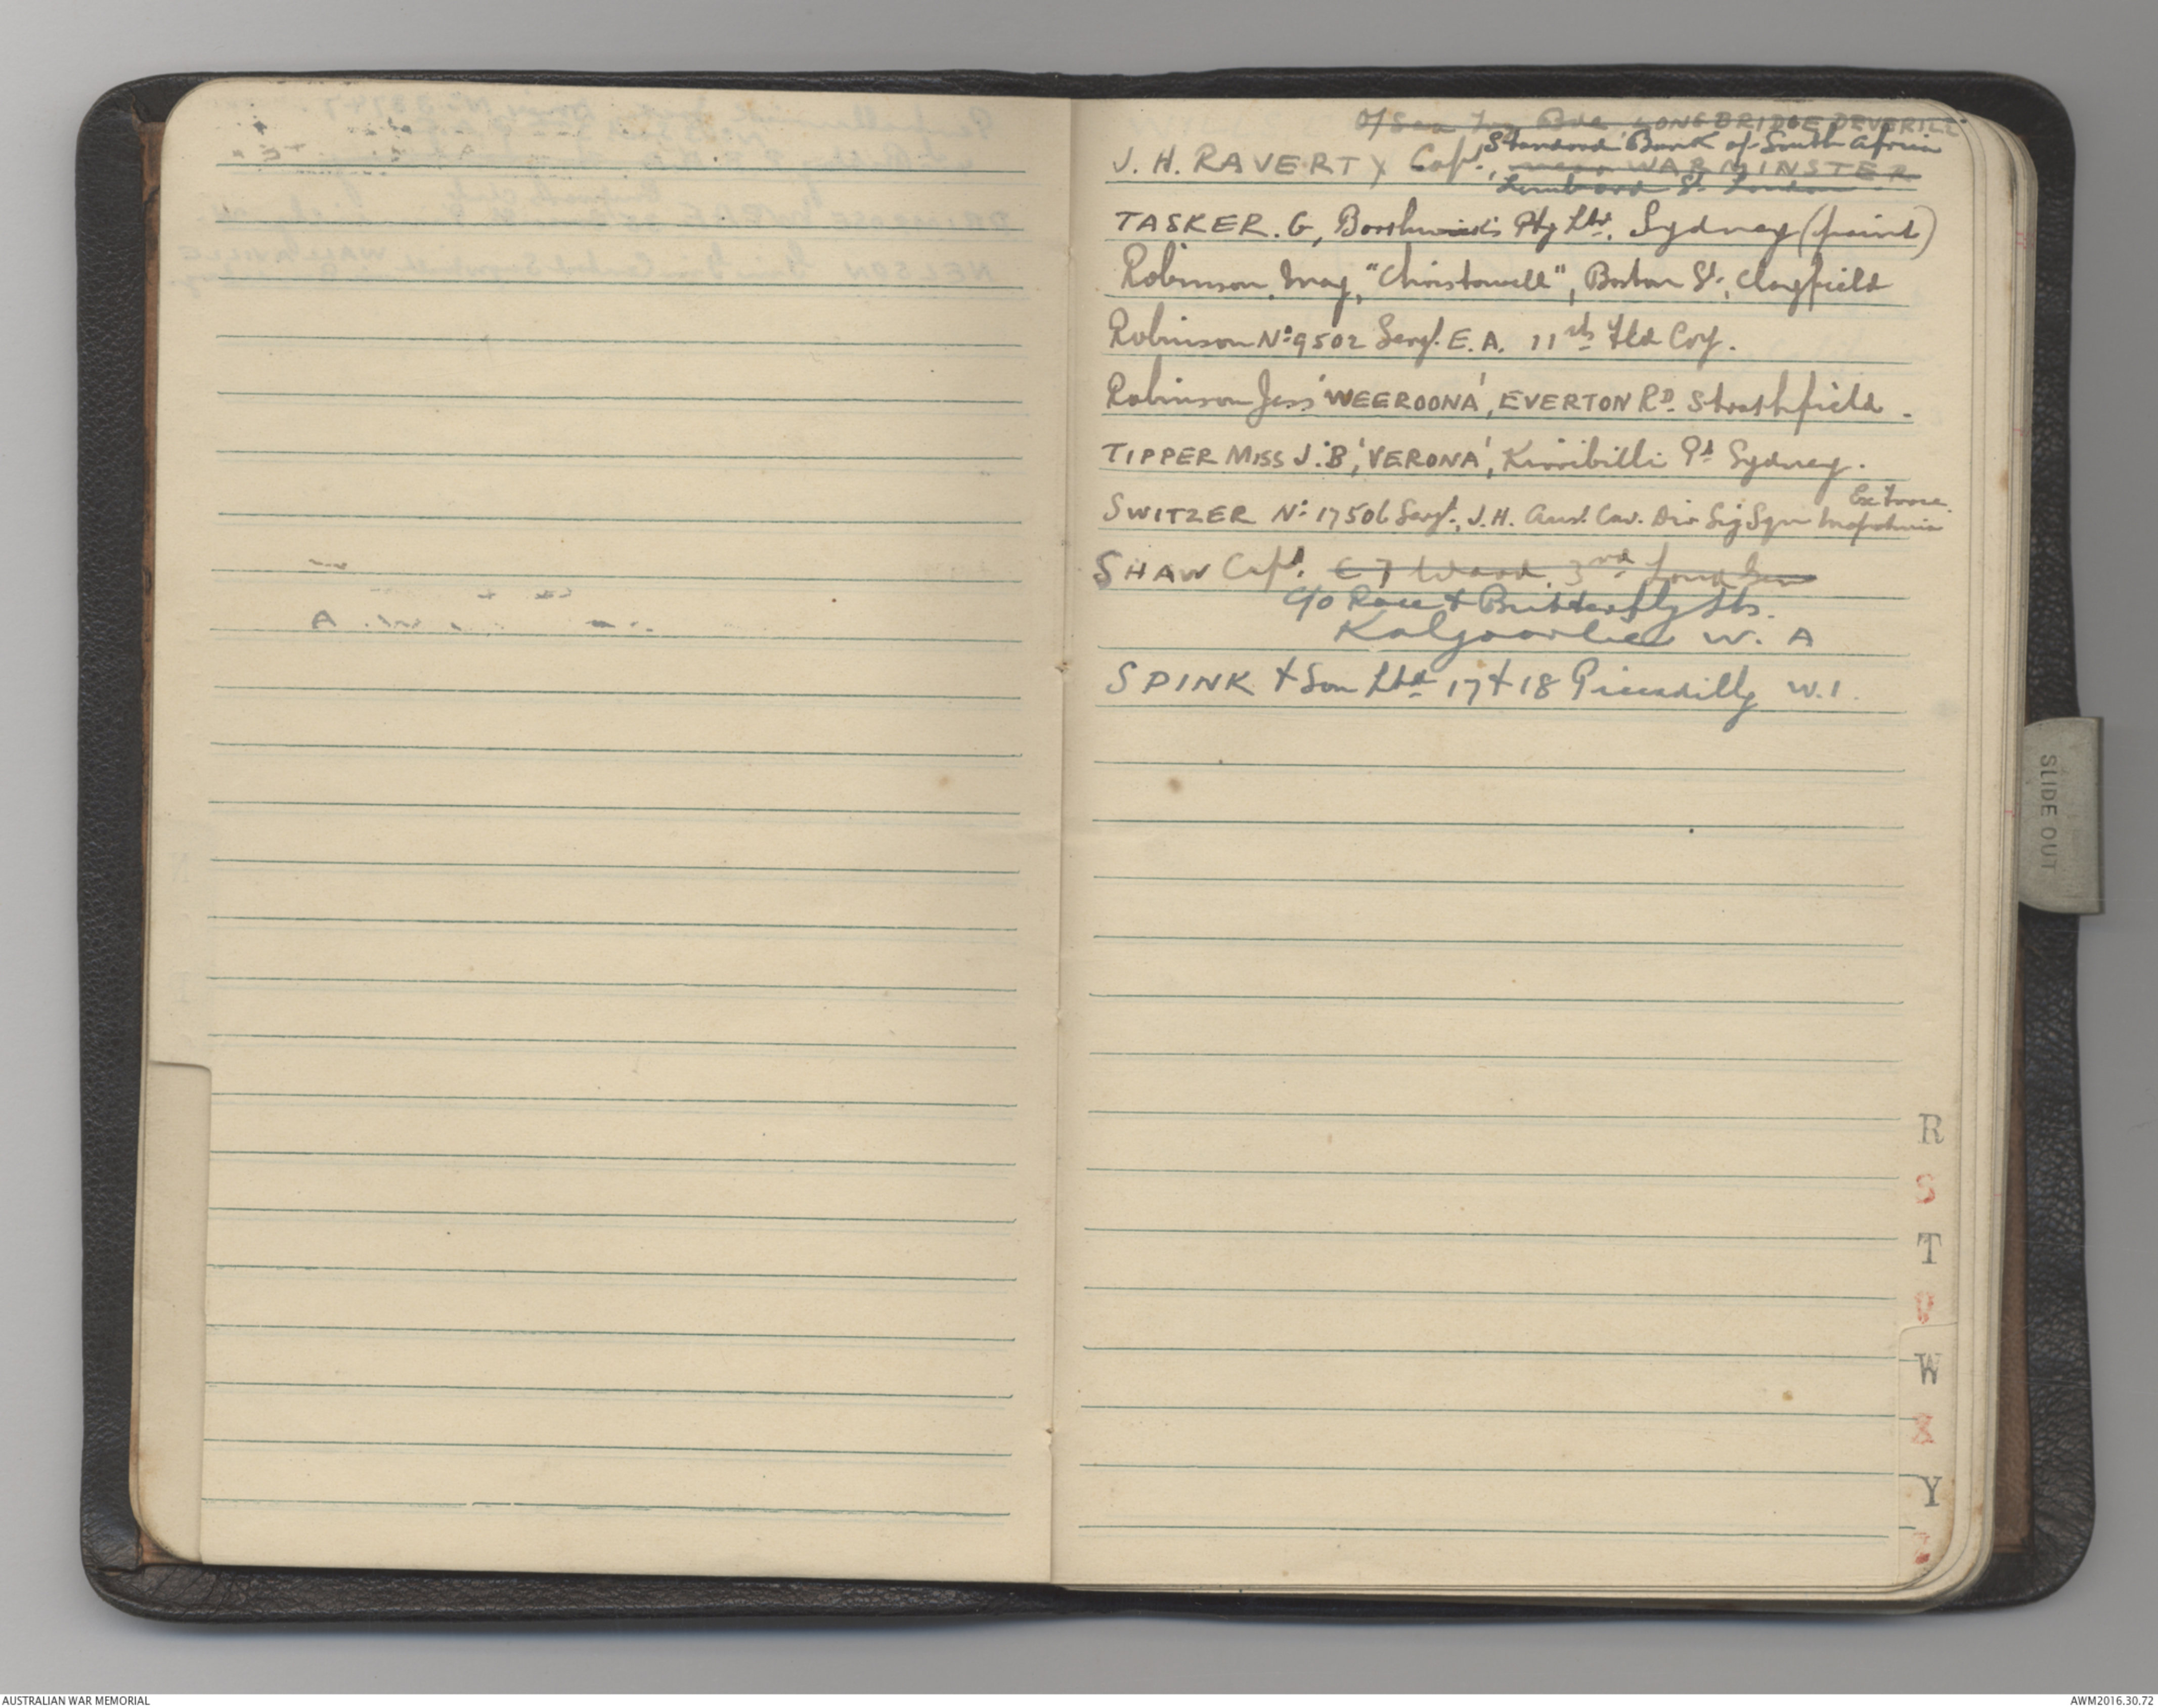 O/Sea Trg Bde, LONGBRIDGE DEVERILL
Standard Bank of South Africa
J. H. RAVERTY Capt., near WARMINSTER
Lombard St. London
TASKER. G, Borthwick's Pty Ltd. Sydney (paint)
Robinson. May, "Christowell", Boston St., Clayfield
Robinson No 9502 Sergt. E. A. 11th Fld Coy.
Robinson Jess 'WEEROONA', EVERTON RD. Strathfield.
TIPPER MISS J.B, 'VERONA', Kirribilli Pt Sydney.
Ex Force
SWITZER No 17506 Sergt., J.H. Aust. Cav. Div Sig Sqn
SHAW Capt. C7 Ward. 3rd Lond Gen
c/o Race & Butterfly Sts.
Kalgoorlie W. A
SPINK & Son Ltd 17 & 18 Piccadilly W.1.
SLIDE OUT
R
S
T
W
X
Y
AUSTRALIAN WAR MEMORIAL
AWM2016.30.72